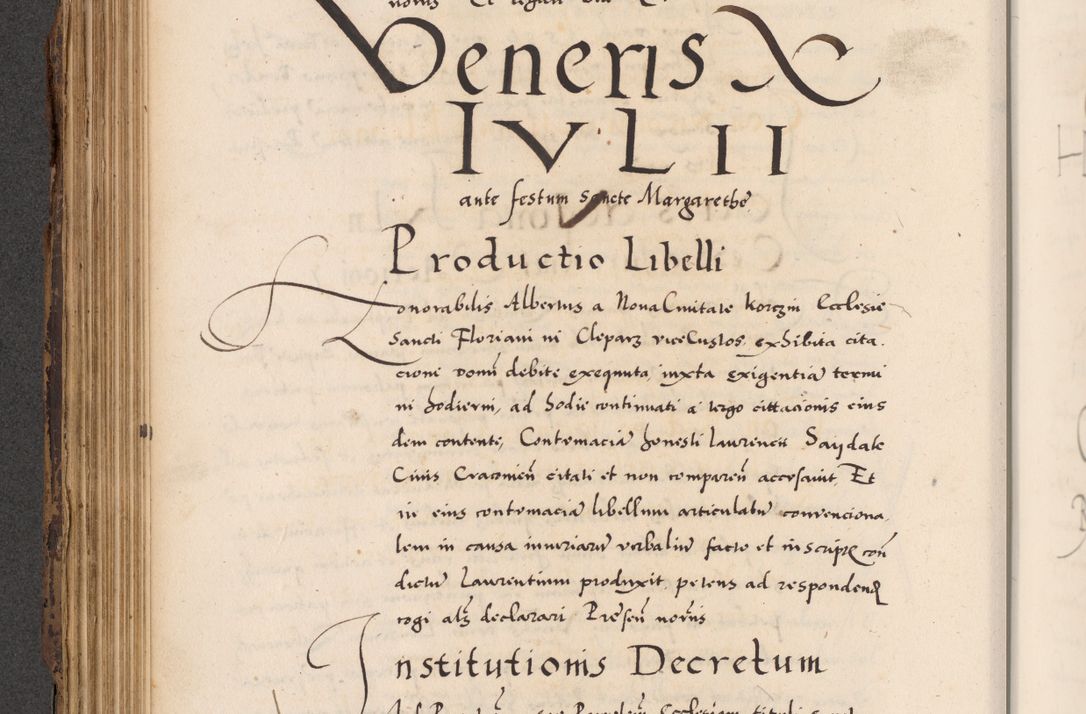 Veneris X
IVLII
ante festum Sancte Margarethe
Productio Libelli
Honorabilis Albertus a Nova Civitate korczin Ecclesie
Sancti Floriani in Cleparz viceCustos, exhibita cita
cione domū debite exequuta, iuxta exigentiā termi
ni hodierni, ad hodie continuati a tergo cittacionis eius
dem contente, Contumaciā honesti Laurencii Saydale
Civis Cracovień citati et non compareń accusavit, Et
in eius contumaciā libellum articulatū convenciona
lem in causa iniuriarū verbaliū facto et in scriptis coń
dictū Laurentium produxit, petens ad respondend
cogi als declarari Preseń noriis
Institutionis Decretum